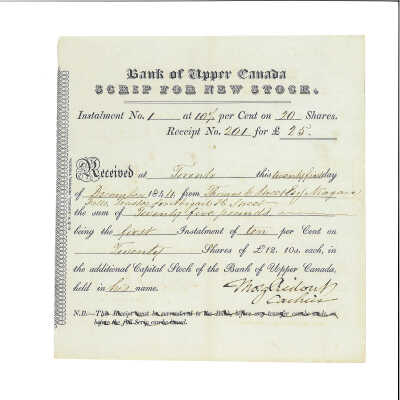 Bank of Upper Canada
SCRIP FOR NEW STOCK.
Instalment No. 1 at 10% per Cent on 20 Shares.
Receipt No. 201 for £ 25.
Received at Toronto this twenty first day
of December 1844 from Thomas C. Street of Niagara
Falls
the sum of Twenty five pounds
being the first Instalment of ten per Cent on
Twenty Shares of £12. 10s. each, in
the additional Capital Stock of the Bank of Upper Canada,
held in his name.
Thos. G. Ridout
Cashier
N.B. This Receipt must be surrendered to the Bank, before any transfer can be made, or
before the full Scrip can be issued.